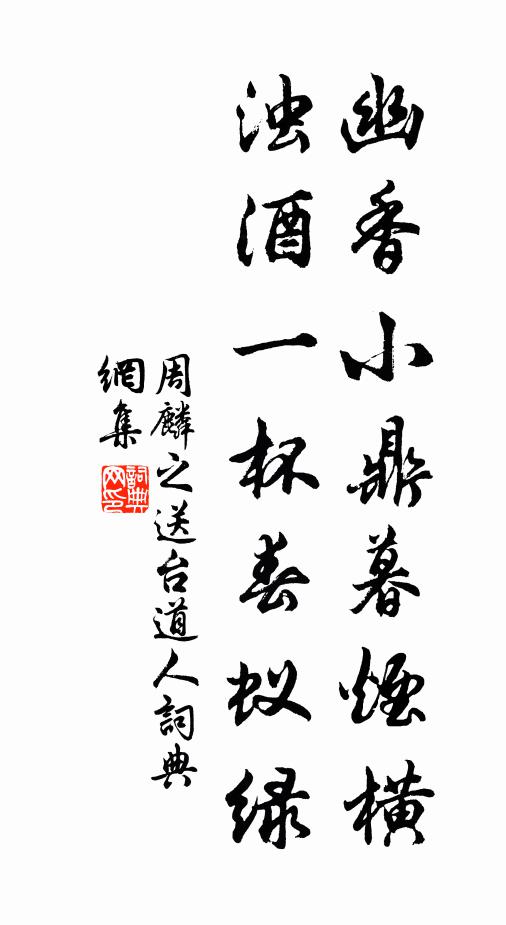 幽香小鼎暮煙橫
浊酒一杯春蚁绿
周麟之送台道人詞典
網集
詞典
网印